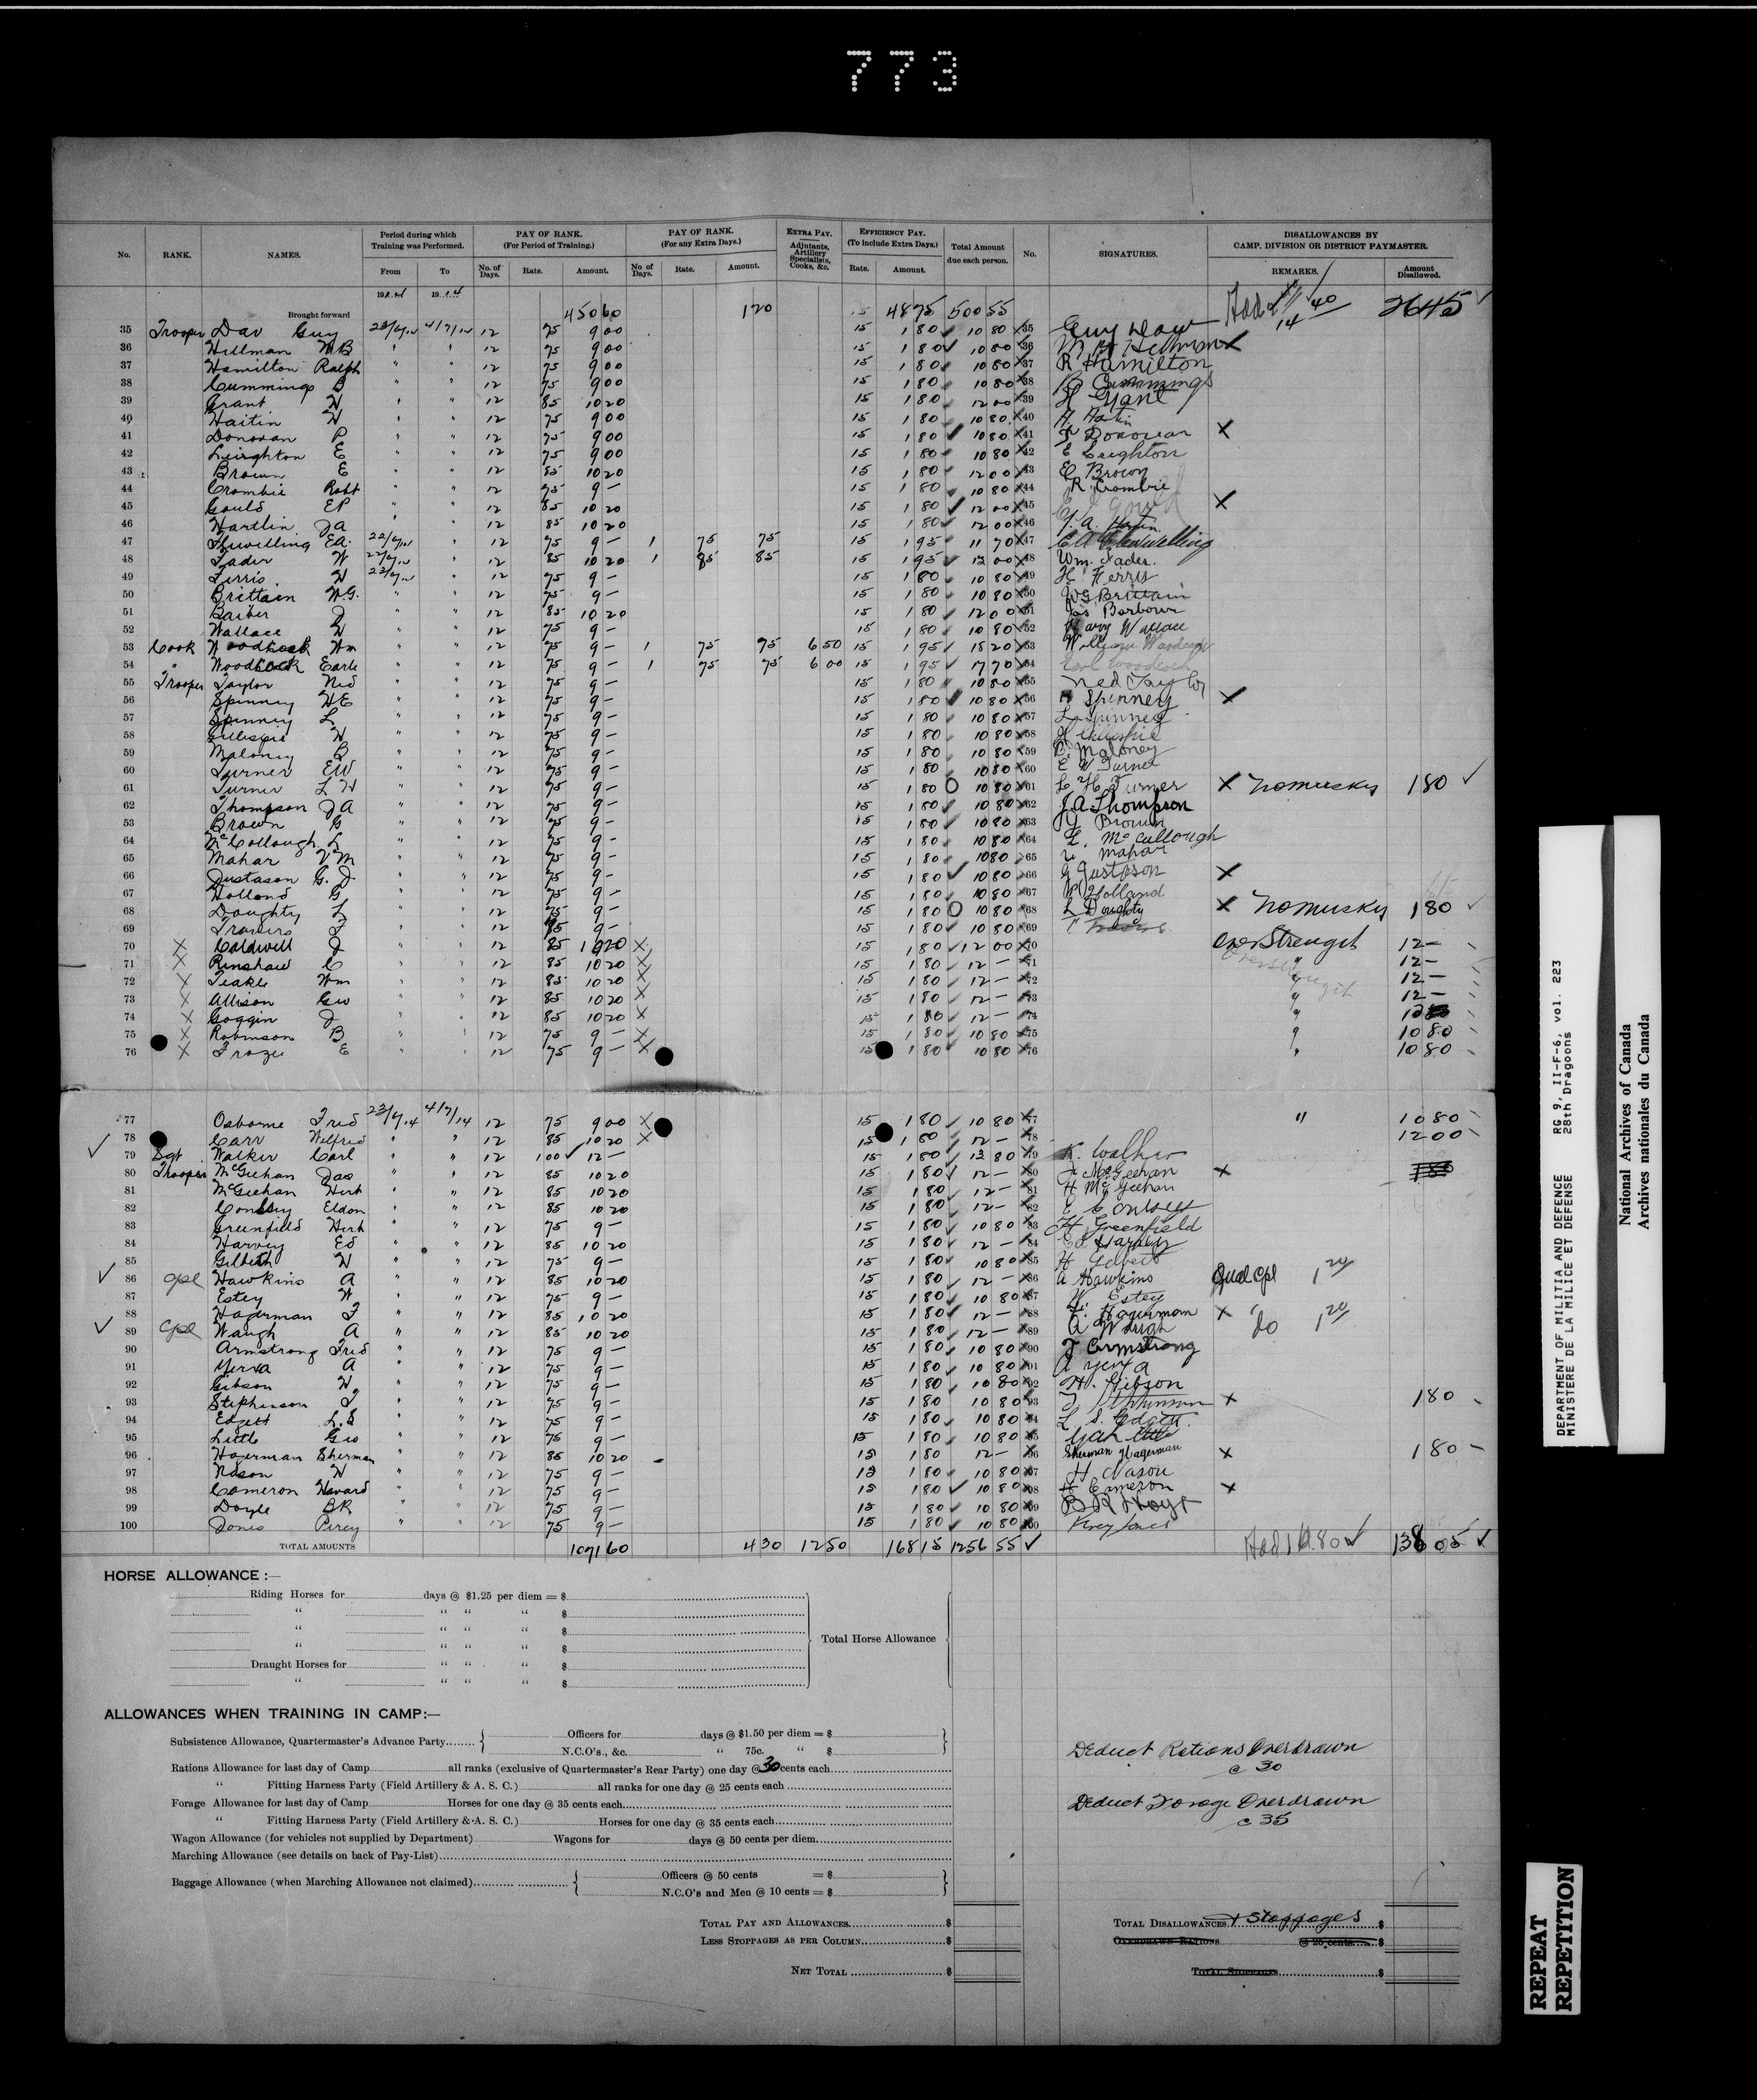 773
No. RANK. NAMES. Period during which Training was Performed. PAY OF RANK. (For Period of Training.) PAY OF RANK. (For any Extra Days.) EXTRA PAY. Adjutants, Artillery Specialists, Cooks, &c. EFFICIENCY PAY. (To include Extra Days.) Total Amount due each person. No. SIGNATURES. DISALLOWANCES BY CAMP, DIVISION OR DISTRICT PAYMASTER.
From To No. of Days. Rate. Amount. No. of Days. Rate. Amount. Rate. Amount. REMARKS. Amount Disallowed.
Brought forward 450 60 1 20 48 75 500 55 26 45
35 Trooper Daw Guy 12 75 9 00 15 1 80 10 80 35 Guy Daw
36 Hillman 12 75 9 00 15 1 80 10 80 36
37 Hamilton Ralph 12 75 9 00 15 1 80 10 80 37 R Hamilton
38 Cummings B 12 75 9 00 15 1 80 10 80 38 B Cummings
39 Grant H 12 85 10 20 15 1 80 12 00 39 H Grant
40 Haitin H 12 75 9 00 15 1 80 10 80 40
41 Donovan P 12 75 9 00 15 1 80 10 80 41 Donovan X
42 Leighton E 12 75 9 00 15 1 80 10 80 42 E Leighton
43 Brown E 12 85 10 20 15 1 80 12 00 43 E Brown
44 Crombie Robt 12 75 9 — 15 1 80 10 80 44 R Crombie
45 Gould EP 12 85 10 20 15 1 80 12 00 45 Gould X
46 Hartlin Ja 12 85 10 20 15 1 80 12 00 46
47 EA. 12 75 9 — 1 75 75 15 1 95 11 70 47
48 Fader W 12 85 10 20 1 85 85 15 1 95 13 00 48 Wm. Fader.
49 Ferris H 12 75 9 — 15 1 80 10 80 49 H Ferris
50 Brittain W.G. 12 75 9 — 15 1 80 10 80 50 WG Brittain
51 Barber J 12 85 10 20 15 1 80 12 00 51 Barbour
52 Wallace H 12 75 9 — 15 1 80 10 80 52 Harry Wallace
53 Cook Woodcock Wm 12 75 9 — 1 75 75 6 50 15 1 95 18 20 53 William Woodcock
54 " Woodcock Earle 12 75 9 — 1 75 75 6 00 15 1 95 17 70 54 Earl Woodcock
55 Trooper Taylor Ned 12 75 9 — 15 1 80 10 80 55 Ned Taylor
56 Spinney HE 12 75 9 — 15 1 80 10 80 56 H Spinney X
57 Spinney L 12 75 9 — 15 1 80 10 80 57 L Spinney
58 Gillespie H 12 75 9 — 15 1 80 10 80 58 H Gillespie
59 Maloney B 12 75 9 — 15 1 80 10 80 59 B. Maloney
60 Turner EW 12 75 9 — 15 1 80 10 80 60 E W Turner
61 Turner L H 12 75 9 — 15 1 80 10 80 61 L H Turner X No musky 1 80
62 Thompson J A 12 75 9 — 15 1 80 10 80 62 J A Thompson
53 Brown G 12 75 9 — 15 1 80 10 80 63 G Brown
64 McCollough L 12 75 9 — 15 1 80 10 80 64 L. McCullough
65 Mahar V M 12 75 9 — 15 1 80 10 80 65 Mahar
66 Justason G. J. 12 75 9 — 15 1 80 10 80 66 G Justason X
67 Holland G 12 75 9 — 15 1 80 10 80 67 Holland
68 Doughty L 12 75 9 — 15 1 80 10 80 68 L Doughty X No musky 1 80
69 Travers F 12 75 9 — 15 1 80 10 80 69
70 X Caldwell J 12 85 10 20 X 15 1 80 12 00 70 Over Strength 12 —
71 X Rinshaw C 12 85 10 20 X 15 1 80 12 — 71 " 12 —
72 X Teakle Wm 12 85 10 20 X 15 1 80 12 — 72 " 12 —
73 X Allison Geo 12 85 10 20 X 15 1 80 12 — 73 " 12 —
74 X Goggin J 12 85 10 20 X 15 1 80 12 — 74 "
75 X Robinson B 12 75 9 — X 15 1 80 10 80 75 " 10 80
76 X E 12 75 9 — X 15 1 80 10 80 76 " 10 80
77 Osborne Fred 12 75 9 00 X 15 1 80 10 80 77 " 10 80
78 Carr Wilfred 12 85 10 20 X 15 1 80 12 — 78 12 00
79 Sgt Walker Carl 12 1 00 12 — 15 1 80 13 80 79 K. Walker
80 Trooper McGeehan Jas 12 85 10 20 15 1 80 12 — 80 J McGeehan X
81 McGeehan Herb 12 85 10 20 15 1 80 12 — 81 H McGeehan
82 Eldon 12 85 10 20 15 1 80 12 — 82
83 Greenfield Herb 12 75 9 — 15 1 80 10 80 83 H Greenfield
84 Harvey Ed 12 85 10 20 15 1 80 12 — 84 Ed Harvey
85 H 12 75 9 — 15 1 80 10 80 85
86 Cpl Hawkins A 12 85 10 20 15 1 80 12 — 86 A Hawkins Qual Cpl 1 20
87 Estey W 12 75 9 — 15 1 80 10 80 87 W Estey
88 Hagerman F 12 85 10 20 15 1 80 12 — 88 F. Hagerman X
89 Cpl Waugh A 12 85 10 20 15 1 80 12 — 89 A Waugh do 1 20
90 Armstrong Fred 12 75 9 — 15 1 80 10 80 90 F Armstrong
91 Yerxa A 12 75 9 — 15 1 80 10 80 91 A Yerxa
92 Gibson H 12 75 9 — 15 1 80 10 80 92 H. Gibson
93 Stephenson 12 75 9 — 15 1 80 10 80 93 X 1 80
94 Edgett L.S 12 75 9 — 15 1 80 10 80 94 L. S. Edgett.
95 Little Geo 12 75 9 — 15 1 80 10 80 95
96 Hagerman Sherman 12 85 10 20 15 1 80 12 — 96 Sherman Hagerman X 1 80 —
97 Nason H 12 75 9 — 15 1 80 10 80 97 H Nason
98 Cameron Havard 12 75 9 — 15 1 80 10 80 98 H Cameron X
99 Doyle BR 12 75 9 — 15 1 80 10 80 99
100 Jones Percy 12 75 9 — 15 1 80 10 80 100 Percy Jones
TOTAL AMOUNTS 1071 60 4 30 12 50 168 15 1256 55 138 05
HORSE ALLOWANCE :—
Riding Horses for days @ $1.25 per diem = $
" " " " $
" " " " $
" " " " $
Total Horse Allowance
Draught Horses for " " " $
" " " " $
ALLOWANCES WHEN TRAINING IN CAMP:—
Subsistence Allowance, Quartermaster's Advance Party Officers for days @ $1.50 per diem = $
N.C.O's., &c. " 75c. " $
Deduct Rations Overdrawn
@ 30
Rations Allowance for last day of Camp all ranks (exclusive of Quartermaster's Rear Party) one day @ 30 cents each
" Fitting Harness Party (Field Artillery & A. S. C.) all ranks for one day @ 25 cents each
Forage Allowance for last day of Camp Horses for one day @ 35 cents each
Deduct Forage Overdrawn
@ 35
" Fitting Harness Party (Field Artillery & A. S. C.) Horses for one day @ 35 cents each
Wagon Allowance (for vehicles not supplied by Department) Wagons for days @ 50 cents per diem
Marching Allowance (see details on back of Pay-List)
Baggage Allowance (when Marching Allowance not claimed) Officers @ 50 cents = $
N.C.O's and Men @ 10 cents = $
TOTAL PAY AND ALLOWANCES $
LESS STOPPAGES AS PER COLUMN $
NET TOTAL $
TOTAL DISALLOWANCES + Stoppages $
OVERDRAWN RATIONS @ 25 cents $
TOTAL STOPPAGES $
DEPARTMENT OF MILITIA AND DEFENCE RG 9, II-F-6, vol. 223
MINISTERE DE LA MILICE ET DEFENSE 28th Dragoons
National Archives of Canada
Archives nationales du Canada
REPEAT
REPETITION